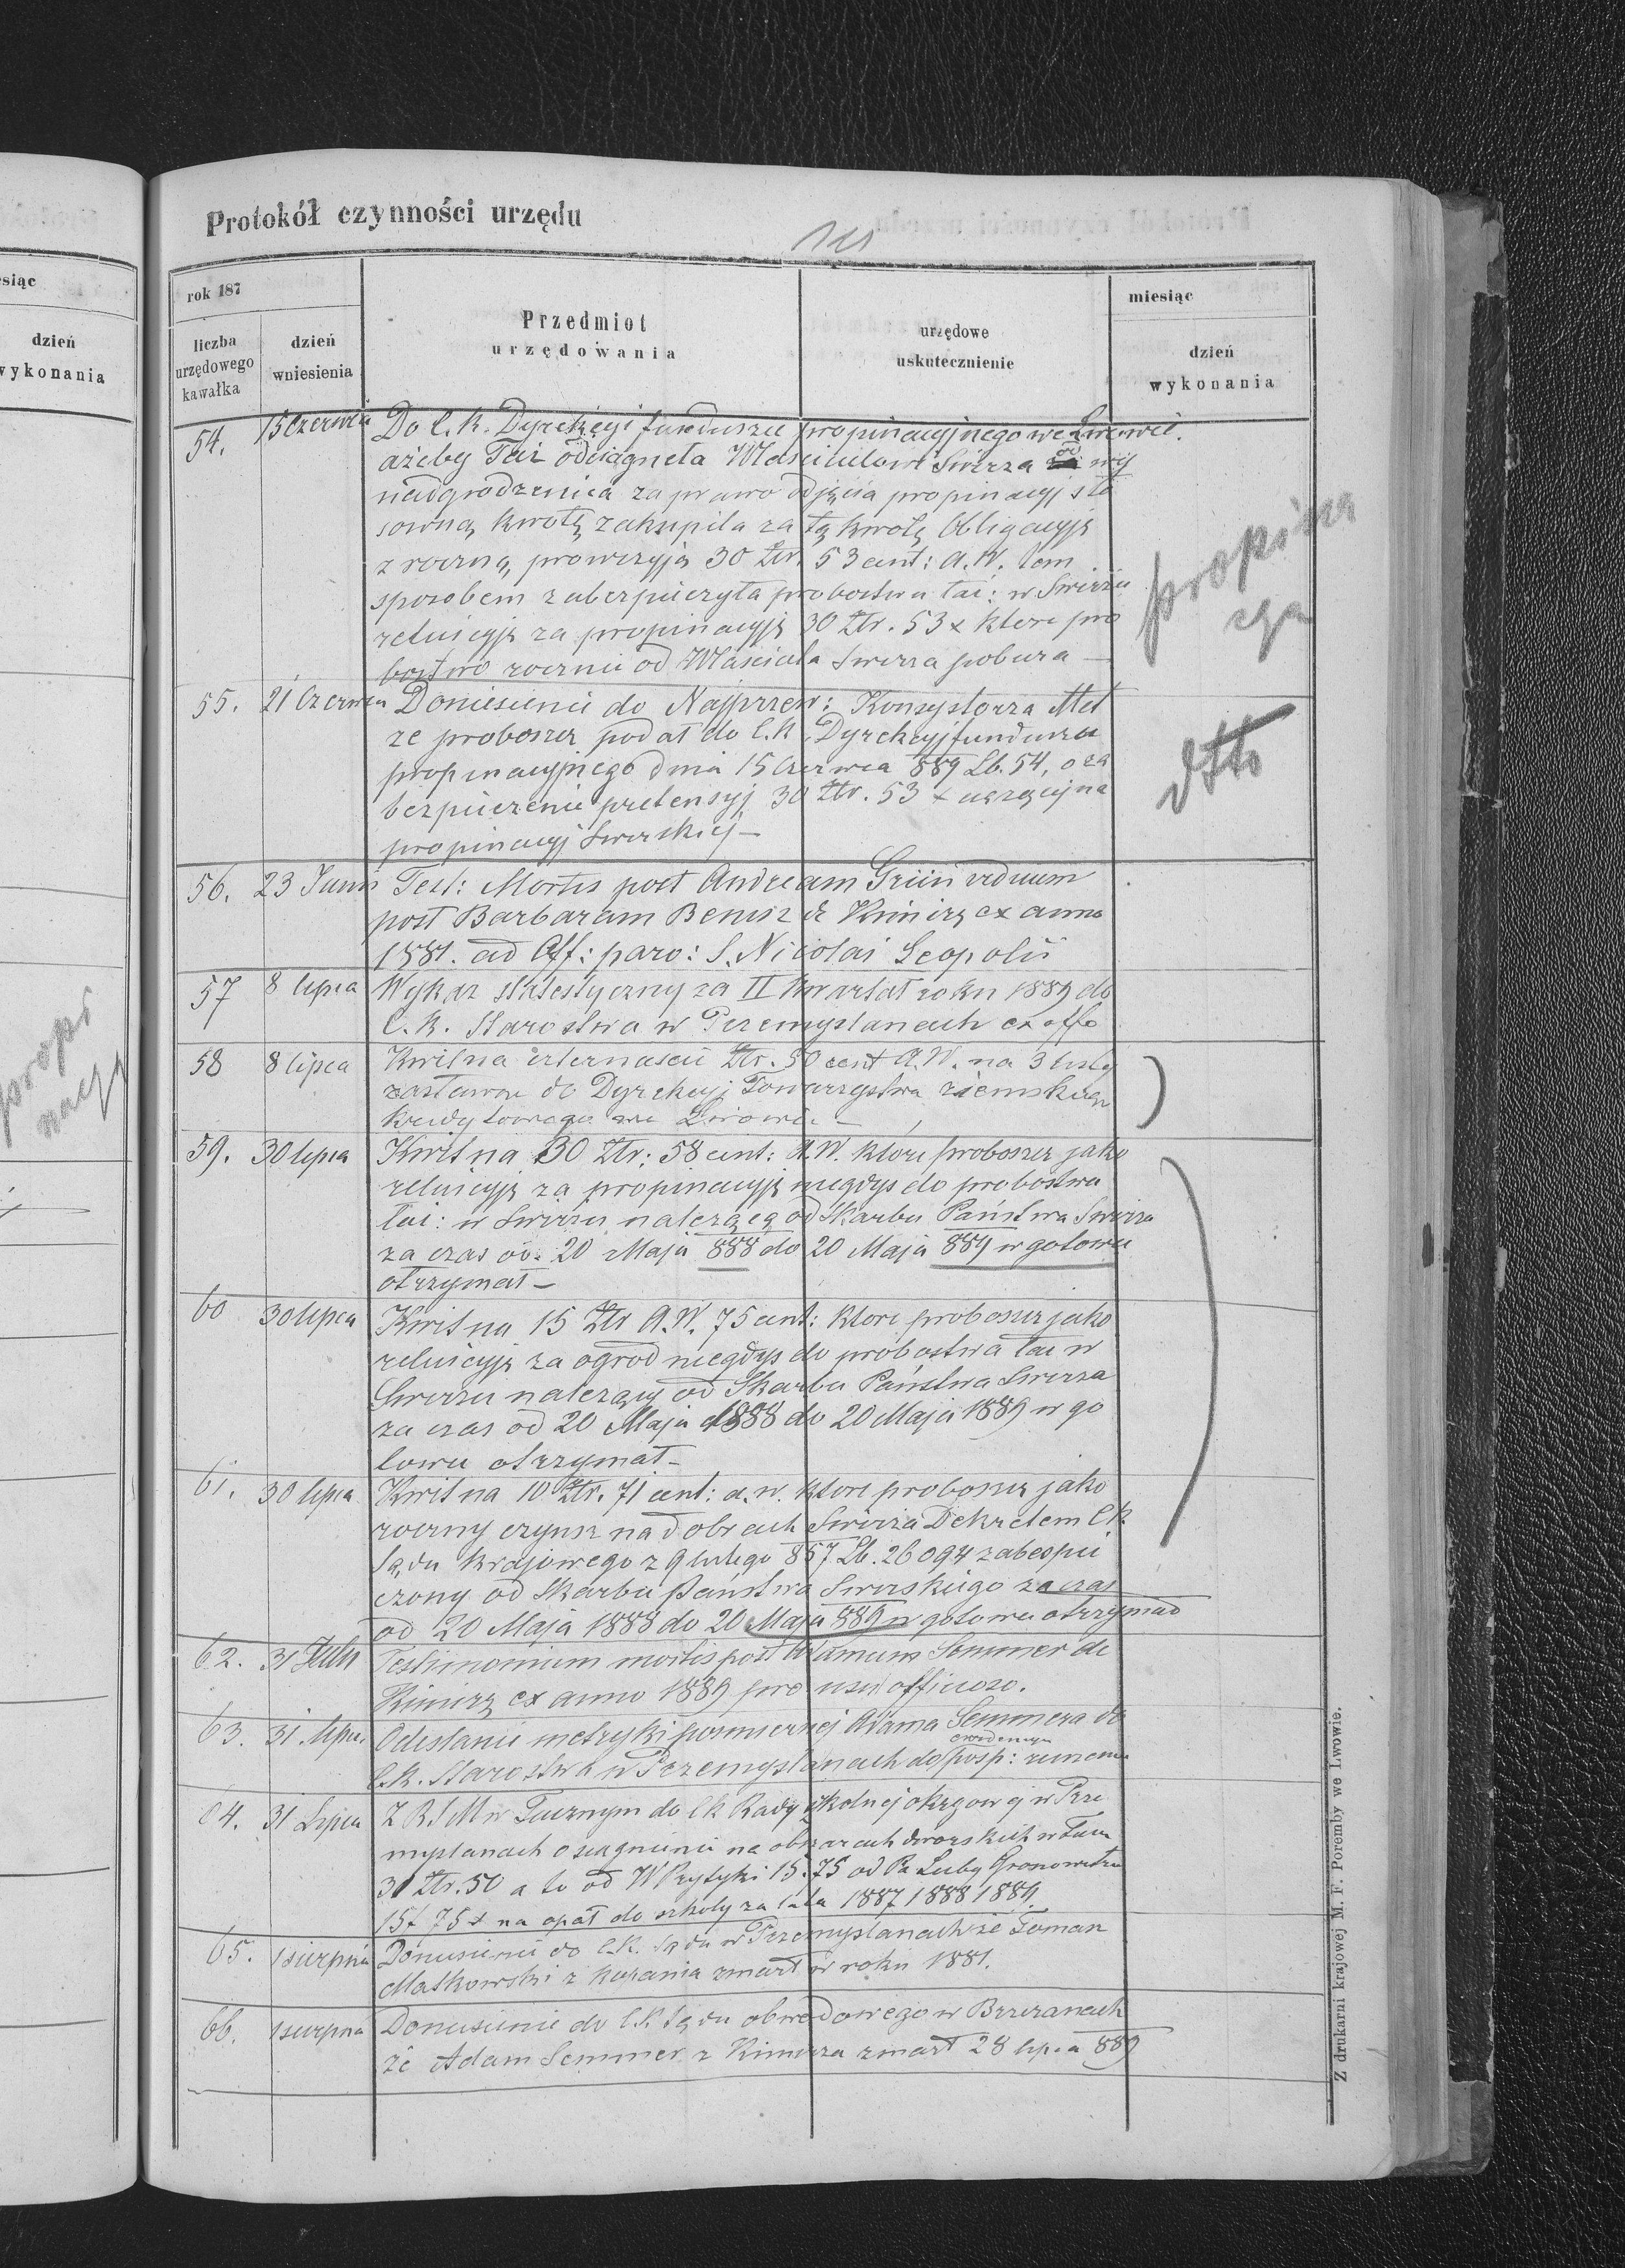 Protokół czynności urzędu
esiąc
dzień
wykonania
rok 187
liczba
urzędowego
kawałka
dzień
wniesienia
Przedmiot
urzędowania
urzędowe
uskutecznienie
miesiąc
dzień
wykonania
54. 15 Czerwca Do C. K. Dyrekcyi funduszu propinacyjnego we Lwowie.
ażeby Taż odciągnęła Właścicielowi Swirza od wy
nadgrodzenia za prawo odjęcia propinacyj sto
sowną kwotę zakupiła za tę kwotę Obligacyję
z roczną prowizyją 30 Złr. 53 cent: A. W. tem
sposobem zabezpieczyła probostwu łać: w Swirzu
reluicyję za propinacyję 30 Złr. 53 x które pro
bostwo rocznie od Właściciela Swirza pobiera —
propina
cya
55. 21 Czerwca Doniesienie do Najprzew: Konsystorza Met
że proboszcz podał do C. K. Dyrekcyj funduszu
propinacyjnego dnia 15 Czerwca 889 Lb. 54, o za
bezpieczenie pretensyj 30 Złr. 53 x ciążącej na
propinacyj Swirskiej —
dtto
56. 23 Junii Test: Mortis post Andream Grün viduum
post Barbaram Benisz de Kimirz ex anno
1881. ad Off: paro: S. Nicolai Leopolii
57 8 lipca Wykaz statestyczny za II Kwartał roku 1889 do
C. K. Starostwa w Przemyslanach ex offo
58 8 lipca Kwit na czternaście Złr. 50 cent A. W. na 3 listy
zastawne do Dyrekcyj Towarzystwa ziemskiego
kredytowego we Lwowie —
59. 30 lipca Kwit na 30 Złr: 58 cent: A. W. które proboszcz jako
reluicyję za propinacyję niegdys do probostwa
łać: w Swirzu należącą od Skarbu Państwa Swirza
za czas od 20 Maja 888 do 20 Maja 889 w gotowce
otrzymał —
60 30 lipca Kwit na 15 Złr A. W. 75 cent: które proboszcz jako
reluicyję za ogrod niegdys do probostwa łać w
Swirzu należący od Skarbu Państwa Swirza
za czas od 20 Maja 1888 do 20 Maja 1889 w go
towce otrzymał —
61. 30 lipca Kwit na 10 Złr. 71 cent: a. w. które proboszcz jako
roczny czynsz na dobrach Swirza Dekretem C K.
Sądu Krajowego z 9 lutego 857 Lb. 26094 zabezpie
czony od Skarbu Państwa Swirskiego za czas
od 20 Maja 1888 do 20 Maja 889 w gotowce otrzymał
62. 31 Julii Testimonium mortis post Adamum Semmer de
Kimirz ex anno 1889 pro usu officioso.
63. 31. lipca Odesłanie metryki pośmiertnej Adama Semmera do
C. K. Starostwa w Przemyslanach do posp: ruszenia
64. 31 Lipca Z R S M w Tucznym do C K Rady szkolnej okręgowej w Prze
myslanach o ściągnienie na obszarach dworskich w Tucz
31 Złr. 50 a to od W Przytyki 15. 75 od Pa Luby
15 f 75 x na opał do szkoły za lata 1887 1888 1889.
65. 1 sierpnia Doniesienie do C. K. Sądu w Przemyslanach że Toman
Matkowski z Kopania zmarł w roku 1881.
66. 1 sierpnia Doniesienie do C. K. Sądu obwodowego w Brzezanach
że Adam Semmer z Kimirza zmarł 28 lipca 889
Z drukarni krajowej M. F. Poremby we Lwowie.